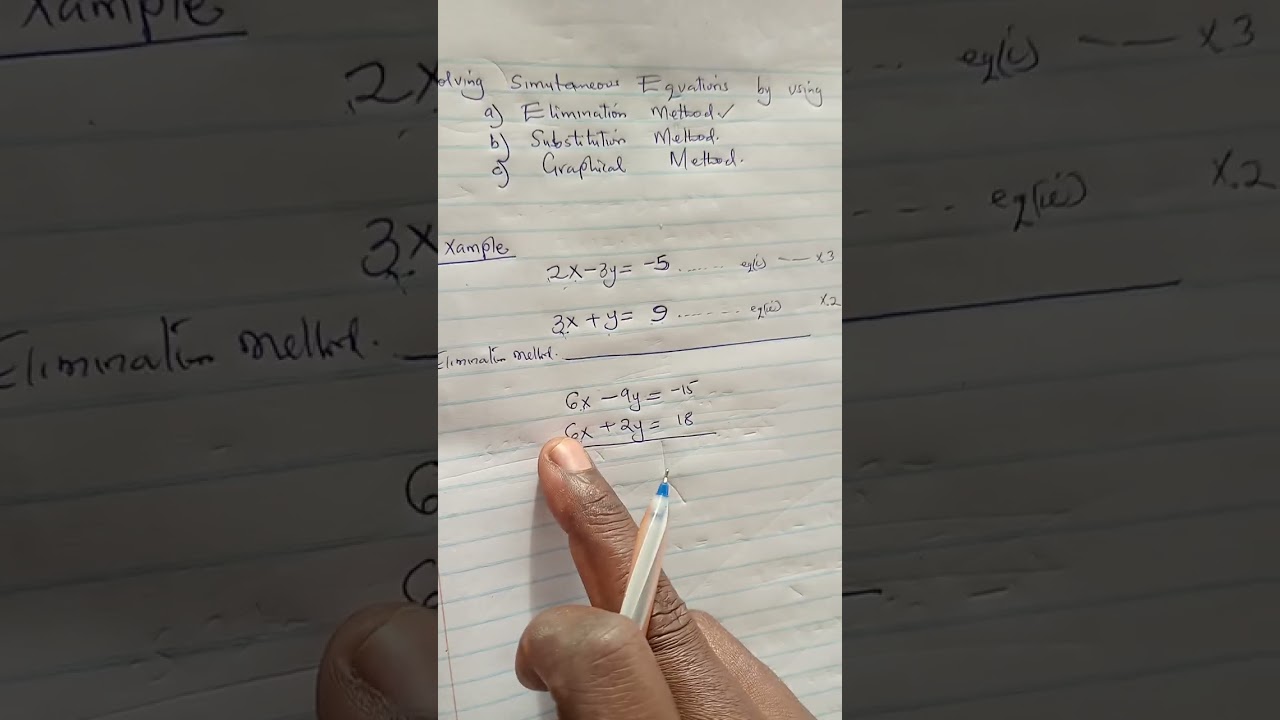 olving Simutaneous Equations by using
a) Elimination Method ✓
b) Substitution Method.
c) Graphical Method.
xample
2x-3y= -5 ...... eq(i) —— x3
3x+y= 9 ....... eq(ii) x.2
Elimination method.
6x -9y= -15
6x +2y= 18